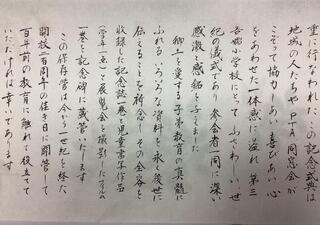 重に行なわれたこの記念式典は
地域の人たちやPTA同窓会が
こぞって協力しあい喜びあい心
をあわせた一体感に溢れ 第三
吾嬬小学校にとって ふさわしい 世
紀の儀式であり 参会者一同に深い
感激と感銘を与えました
郷土を愛する子弟教育の真髄に
ふれる いろいろな資料を永く後世に
伝えることを祈念し その全容を
収録した記念誌一巻と児童書写作品
(学年一点)と展覧会を撮影したフィルム
一巻と記念碑に蔵管いたします
この保存管は今から一世紀を経た
開校二百周年の佳き日に開管して
百年前の教育に触れて役立てて
いただければ幸いであります